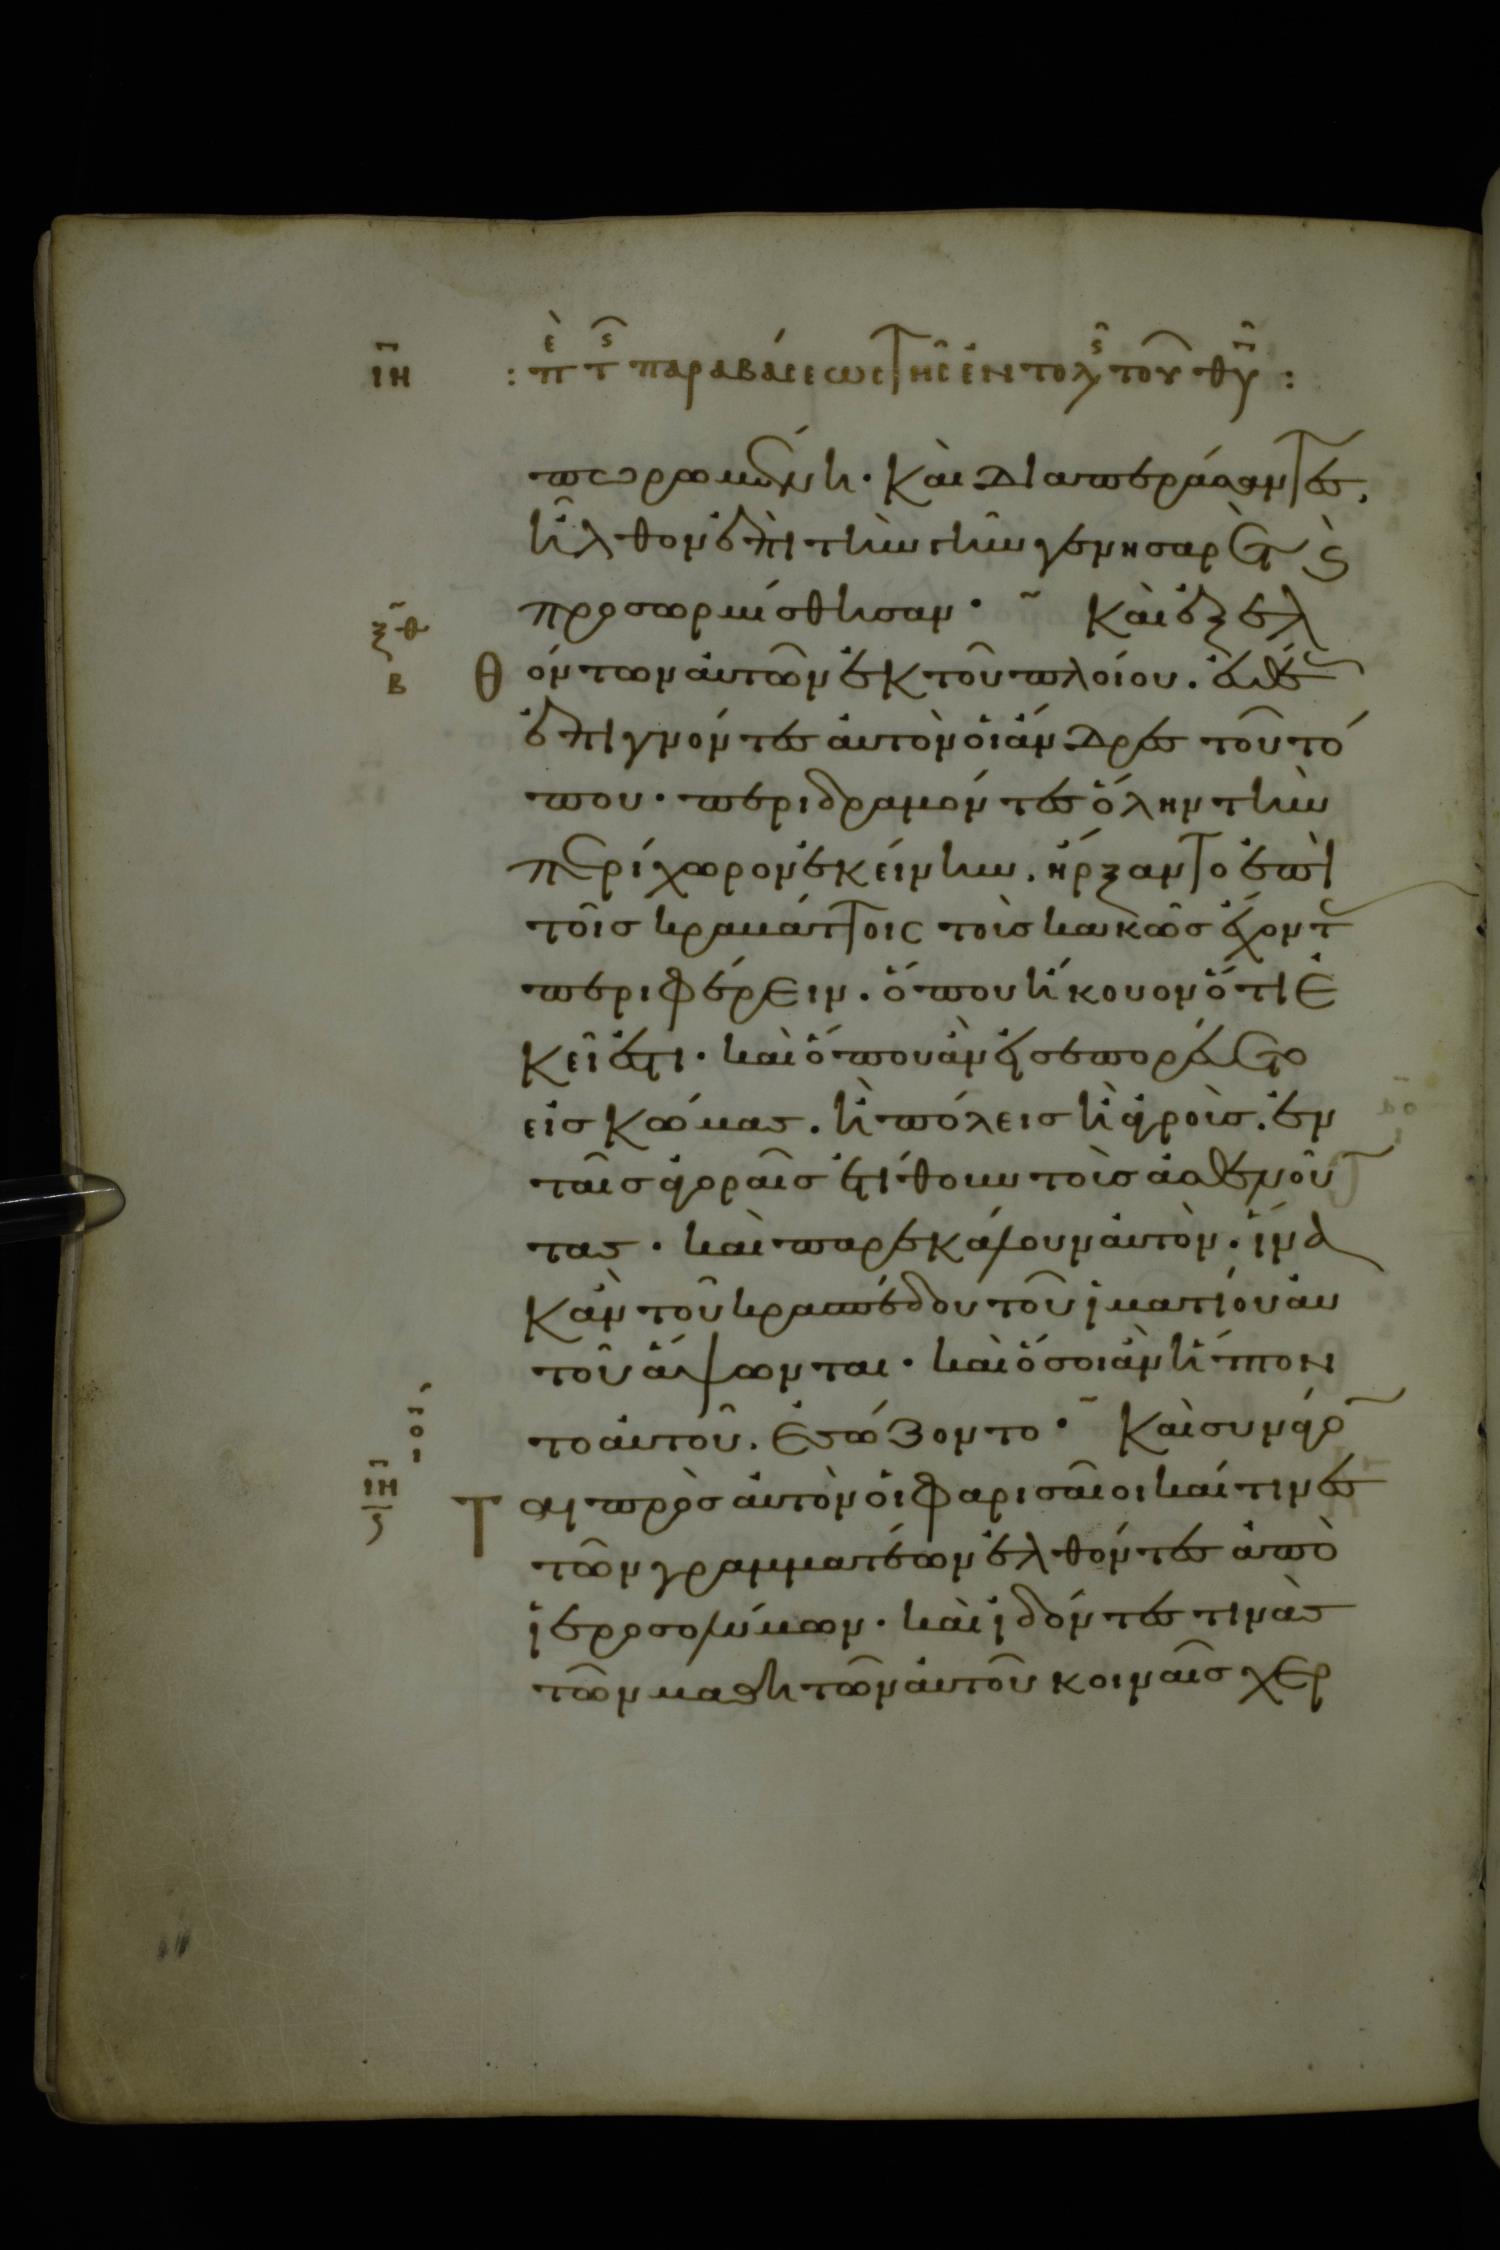 ιη : πὲ τς παραβάσεως τῆς ἐντολς τοῦ θυ :
πεπωρωμένη· Καὶ διαπεράσαντες,
ἦλθον ἐπὶ τὴν γῆν γεννησαρὲτ ϗ
προσωρμίσθησαν· Καὶ ἐξελ
ξθ
β
θόντων αὐτῶν ἐκ τοῦ πλοίου. εὐθέως
ἐπιγνόντες αὐτὸν οἱ ἄνδρες τοῦ τό
που· περιδραμόντες ὅλην τὴν
περίχωρον ἐκείνην. ἤρξαντο ἐπὶ
τοῖς κραβάττοις τοὺς κακῶς ἔχοντ
περιφέρειν. ὅπου ἤκουον ὅτι ἐ
κεῖ ἐστι· καὶ ὅπου ἂν εἰσεπορεύετο
εἰς κώμας. ἢ πόλεις ἢ ἀγροὺς. ἐν
ταῖς ἀγοραῖς ἐτίθουν τοὺς ἀσθενοῦν
τας· καὶ παρεκάλουν αὐτὸν. ἵνα
κἂν τοῦ κρασπέδου τοῦ ἱματίου αὐ
τοῦ ἅψωνται· καὶ ὅσοι ἂν ἥπτον
το αὐτοῦ. ἐσώζοντο· Καὶ συνάγον
ο
ιη
ϛ
ται πρὸς αὐτὸν οἱ φαρισαῖοι καί τινες
τῶν γραμματέων ἐλθόντες ἀπὸ
ἱεροσολύμων· καὶ ἰδόντες τινὰς
τῶν μαθητῶν αὐτοῦ κοιναῖς χερ